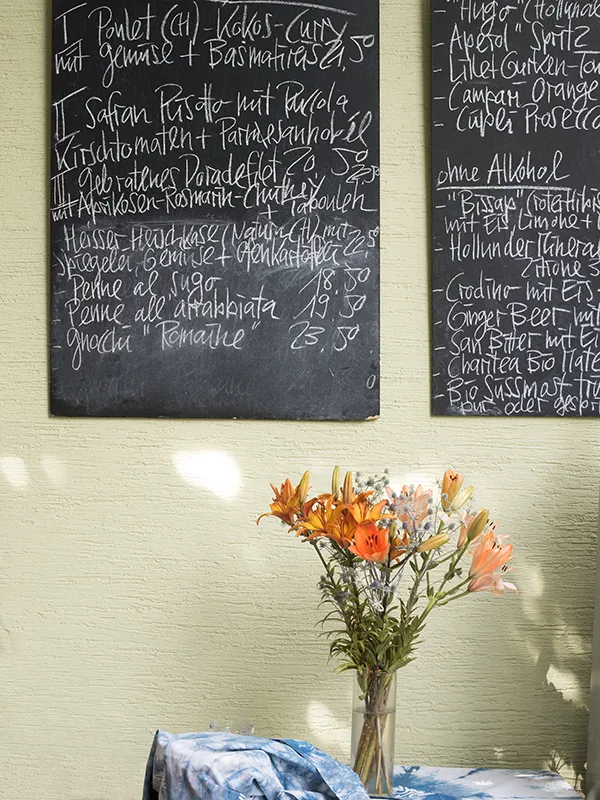 I Poulet (CH)-Kokos-Curry
mit gemüse + Basmatireis 21.50
II Safran Risotto mit Rucola
Kirschtomaten + Parmesanhobel
20.50
III gebratenes Doradefilet 23.50
mit Aprikosen-Rosmarin-Chutney
+ Tabouleh
Heisser Fleischkäse (Natura CH) mit
Spiegelei, Gemüse + Ofenkartoffel 22.50
- Penne al Sugo 18.50
- Penne all'arrabbiata 19.50
- gnocchi "Romaine" 23.50
- "Hugo" (Hollunde
- Aperol "Spritz
- Lillet Gurken-Ton
- Campari Orange
- Cüpli Prosecco
ohne Alkohol
- "Bissap" (rote Hibis
mit Eis, Limone +
- Hollunder Minera
Zitrone
- Crodino mit Eis
- Ginger Beer mit
- San Bitter mit Ei
- Charitea Bio Mate
- Bio Süssmost
pur oder gespr